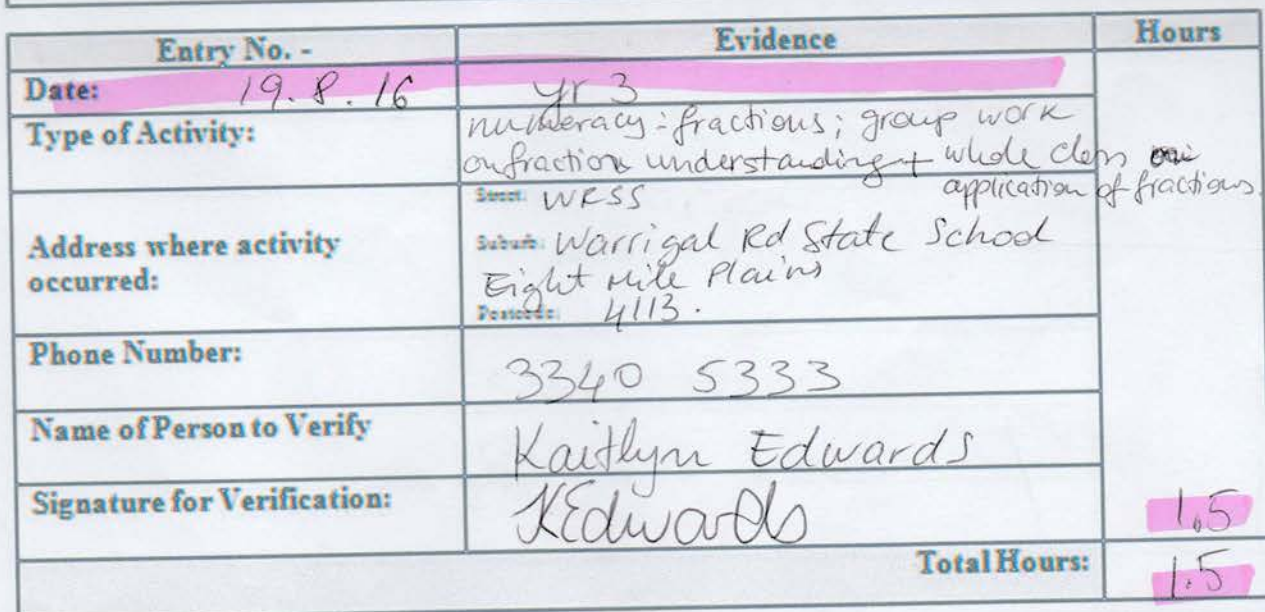 Entry No. - Evidence Hours
Date: 19.8.16 yr 3
Type of Activity: numeracy: fractions; group work
on fraction understanding + whole class
application of fractions.
Street: WRSS
Address where activity occurred: Suburb: Warrigal Rd State School
Eight Mile Plains
Postcode: 4113.
Phone Number: 3340 5333
Name of Person to Verify Kaitlyn Edwards
Signature for Verification: KEdwards 1.5
Total Hours: 1.5